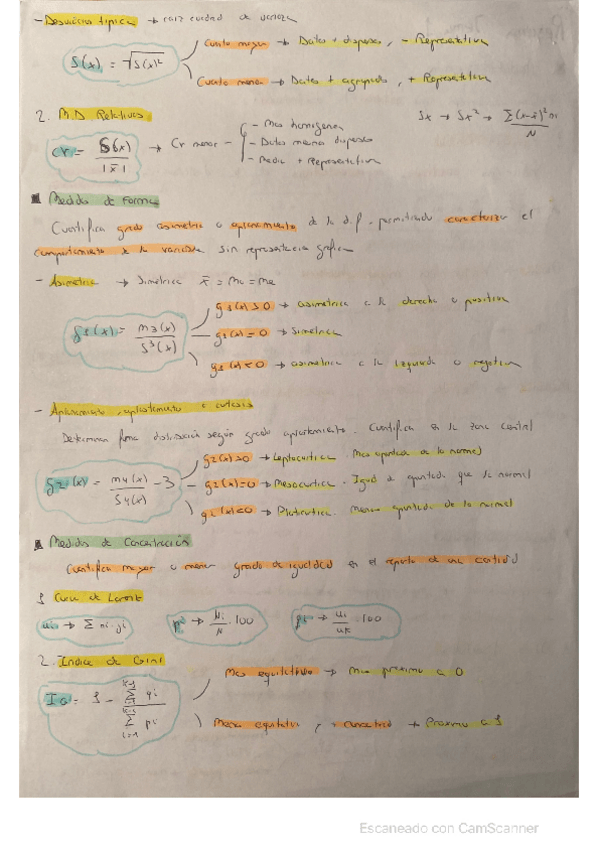 - Desviación típica → raíz cuadrad de varianza
S(x) = √S(x)²
Cuanto mayor → Datos + dispersos, - Representativa
Cuanto menor → Datos + agrupados, + Representativa
2. M.D Relativas
Sx → Sx² → Σ(xi-x̄)²ni / N
CV = S(x) / |x̄| → Cv menor
- Mas homogenea
- Datos menos dispersos
- Media + Representativa
Medidas de Forma
Cuantifica grado asimetria o aplanamiento de la d.f. permitiendo caracterizar el
comportamiento de la variable sin representacia grafica
- Asimetria → Simetrica x̄ = Mo = Me
g1(x) = m3(x) / S³(x)
g1(x) > 0 → asimetrica a la derecha o positiva
g1(x) = 0 → Simetrica
g1(x) < 0 → asimetrica a la izquierda o negativa
- Aplanamiento, aplastamiento o curtosis
Determinan forma distribución según grado apuntamiento. Cuantifica en la zona central
g2(x) = m4(x) / S4(x) - 3
g2(x)>0 → Leptocurtica. Mas apuntada de la normal
g2(x)=0 → Mesocurtica. Igual de apuntada que la normal
g2(x)<0 → Platicurtica. Menos apuntada de la normal
Medidas de Concentración
Cuantifica mayor o menor grado de igualdad en el reparto de una cantidad
1 Curva de Lorenz
ui → Σ ni·xi
pi → Ni / N · 100
qi → ui / uk · 100
2. Indice de Gini
IG = 1 - Σ qi / Σ pi
k-1
i=1
Mas equitativo → Mas proximo a 0
Menos equitativa, + concentrad → Proximo a 1
Escaneado con CamScanner